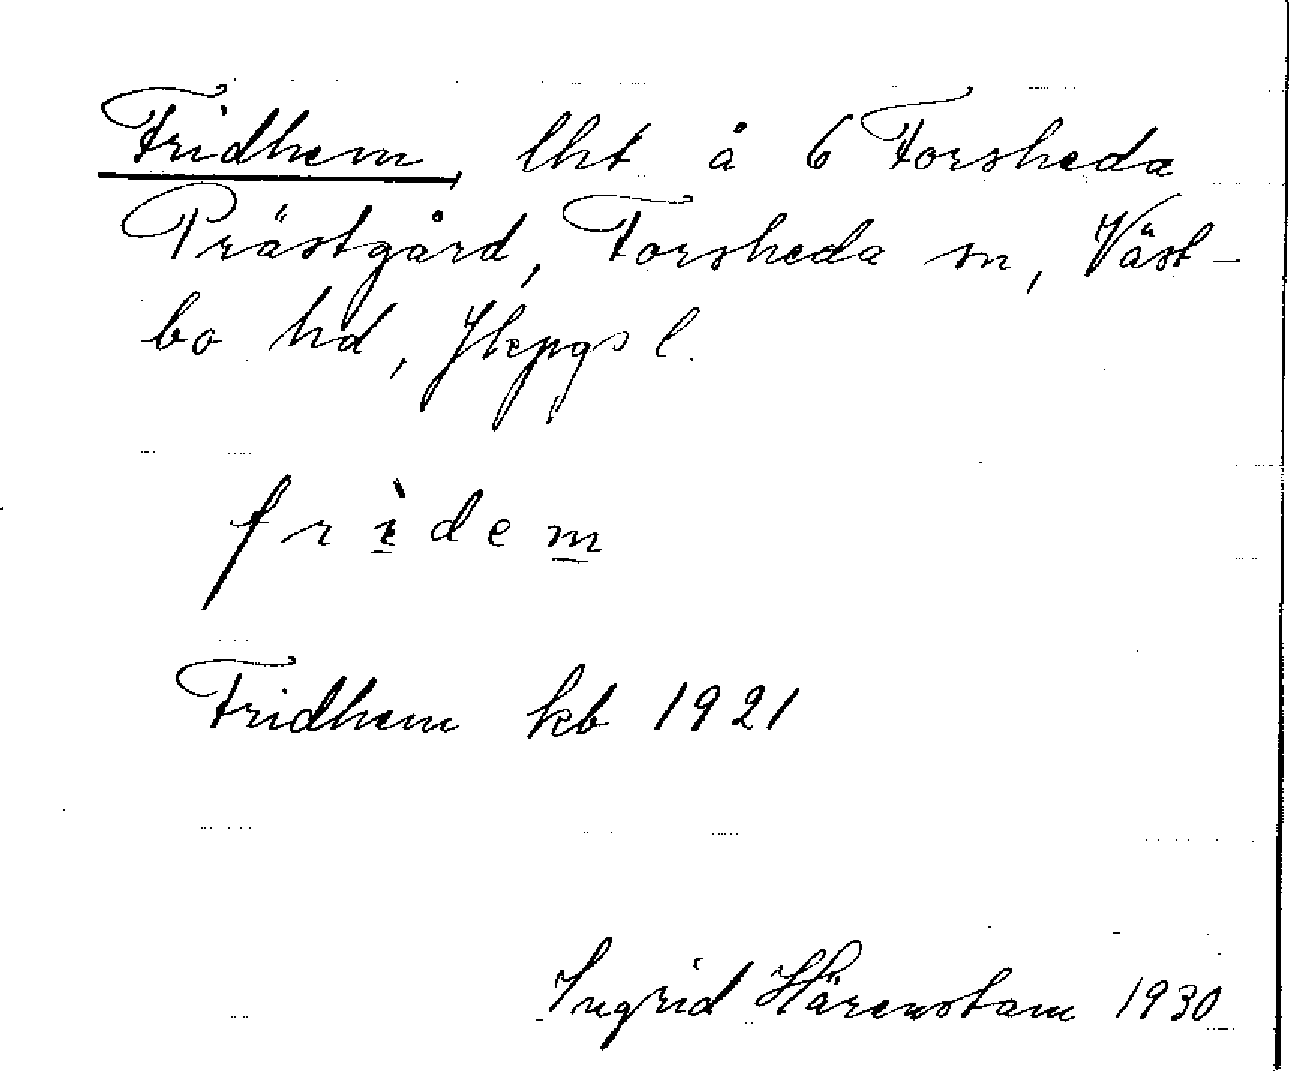 Fridhem, lht å 6 Forsheda
Prästgård, Forsheda sn, Väst-
bo hd, Jkpgs l.
frìdem
Fridhem kb 1921
Ingrid Härenstam 1930